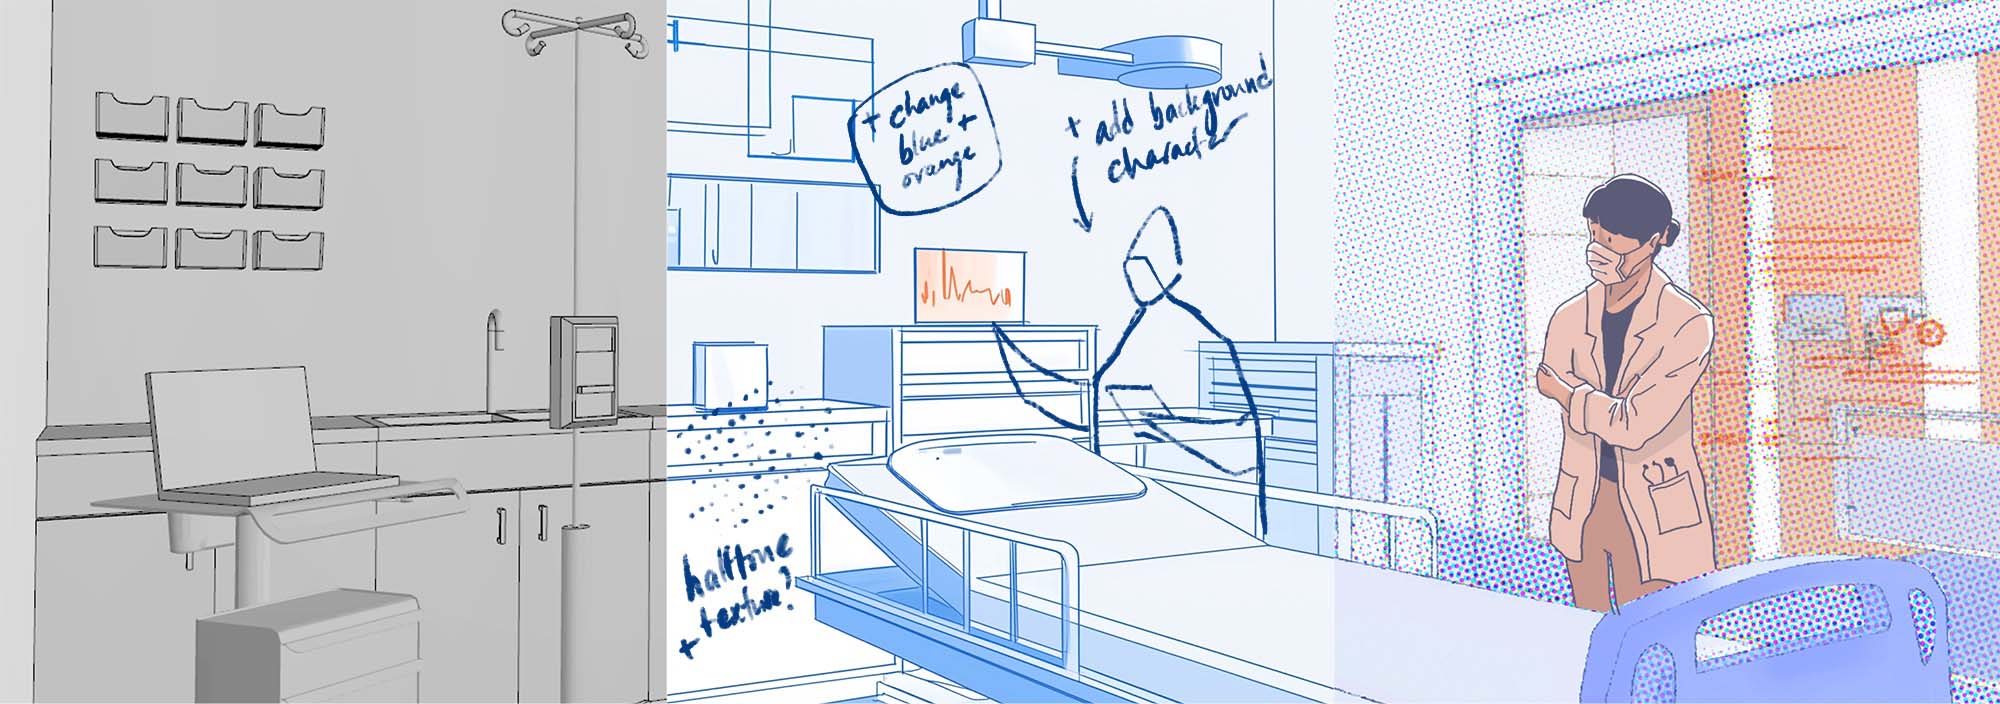 + change
blue +
orange
+ add background
character
halftone
+ texture?